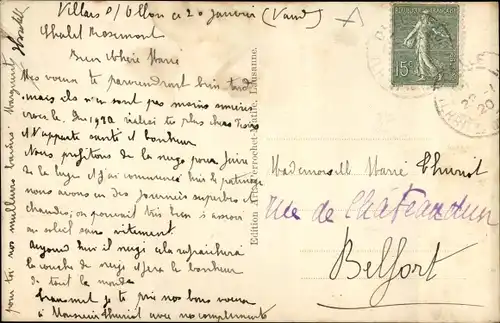 Villars s/ Ollon ce 20 Janvier (Vaud)
Chalet Rosemont
Bien chère Marie
Mes voeux te parviendront bien tard
mais ils n'en sont pas moins sincères
que 1920 réalise tes plus chers désirs
et t'apporte santé et bonheur
Nous profitons de la neige pour faire
de la luge et j'ai commencé hier le patinage
nous avons eu des journées superbes et
chaudes, on pouvait très bien s'asseoir
au soleil sans vêtement
Aujourd'hui il neige cela rafraichira
la couche de neige et fera le bonheur
de tout le monde
Transmet je te prie nos bons voeux
à Monsieur Thuriot avec nos compliments
pour toi nos meilleurs baisers. Marguerite
Edition Art. Perrochet-Matile, Lausanne.
REPUBLIQUE FRANÇAISE
15c
20
Mademoiselle Marie Thuriot
Rue de Châteaudun
Belfort